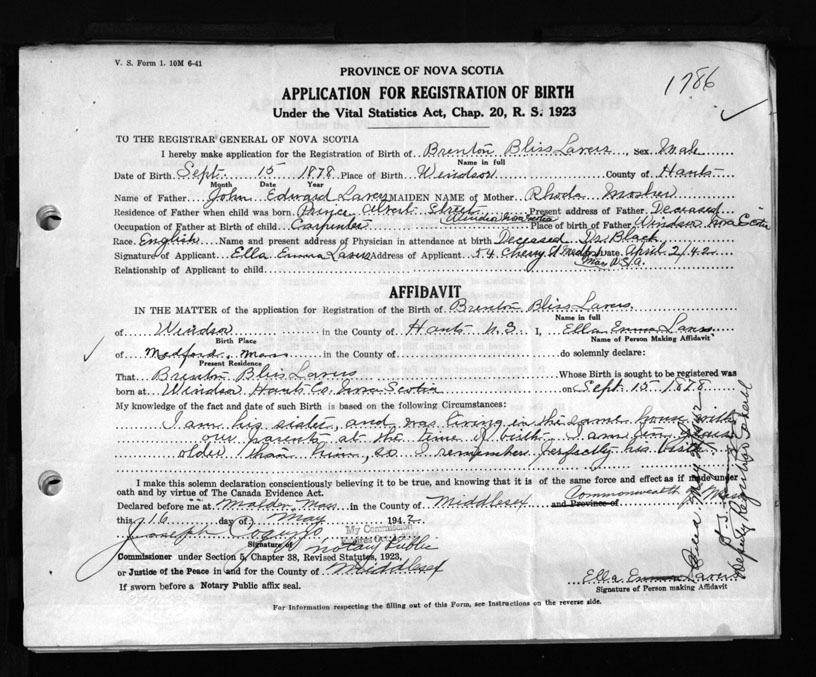 V. S. Form 1. 10M 6-41
1786
PROVINCE OF NOVA SCOTIA
APPLICATION FOR REGISTRATION OF BIRTH
Under the Vital Statistics Act, Chap. 20, R. S. 1923
TO THE REGISTRAR GENERAL OF NOVA SCOTIA
I hereby make application for the Registration of Birth of Brenton Bliss Lavers, Sex Male
Name in full
Date of Birth Sept. 15 1878 Place of Birth Windsor County of Hants
Month Date Year
Name of Father John Edward Lavers MAIDEN NAME of Mother Rhoda Mosher
Residence of Father when child was born Prince Albert Street Windsor Nova Scotia Present address of Father Deceased
Occupation of Father at Birth of child Carpenter Place of birth of Father Windsor Nova Scotia
Race English Name and present address of Physician in attendance at birth Deceased Dr. Black
Signature of Applicant Ella Emma Lavers Address of Applicant 54 Cherry St Medford Mass U.S.A. Date April 2/42
Relationship of Applicant to child
AFFIDAVIT
IN THE MATTER of the application for Registration of the Birth of Brenton Bliss Lavers
Name in full
of Windsor in the County of Hants N.S I, Ella Emma Lavers
Birth Place Name of Person Making Affidavit
of Medford, Mass in the County of do solemnly declare:
Present Residence
That Brenton Bliss Lavers Whose Birth is sought to be registered was
born at Windsor Hants Co. Nova Scotia on Sept. 15-1878
My knowledge of the fact and date of such Birth is based on the following Circumstances:
I am his sister, and was living in the same house with
our parents at the time of birth. I am ten years
older than him, so I remember perfectly his birth.
I make this solemn declaration conscientiously believing it to be true, and knowing that it is of the same force and effect as if made under
oath and by virtue of The Canada Evidence Act.
Declared before me at Malden Mass in the County of Middlesex and Province of Commonwealth of Mass
this 16 day of May 1942
Joseph
My Commission
Expires
Signature of Notary Public
Commissioner under Section 5, Chapter 38, Revised Statutes, 1923,
or Justice of the Peace in and for the County of Middlesex
If sworn before a Notary Public affix seal.
Ella Emma Lavers
Signature of Person making Affidavit
For Information respecting the filling out of this Form, see Instructions on the reverse side.
Deputy Registrar General